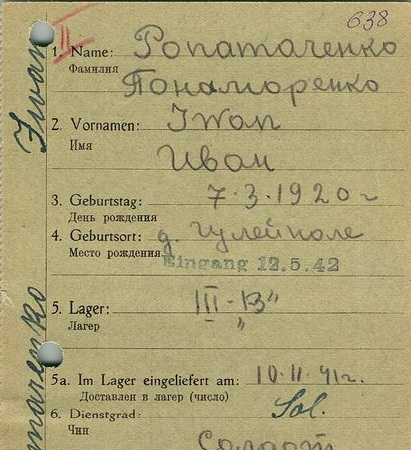 638
II
1. Name: Ponamarenko
Фамилия Понаморенко
2. Vornamen: Iwan
Имя Иван
3. Geburtstag: 7.3.1920 г
День рождения
4. Geburtsort: д. гулейполе
Место рождения Eingang 12.5.42
5. Lager: III-"B"
Лагер
5a. Im Lager eingeliefert am: 10.11.41 г.
Доставлен в лагер (число)
6. Dienstgrad: Sol.
Чин Солдат
Iwan
marenko